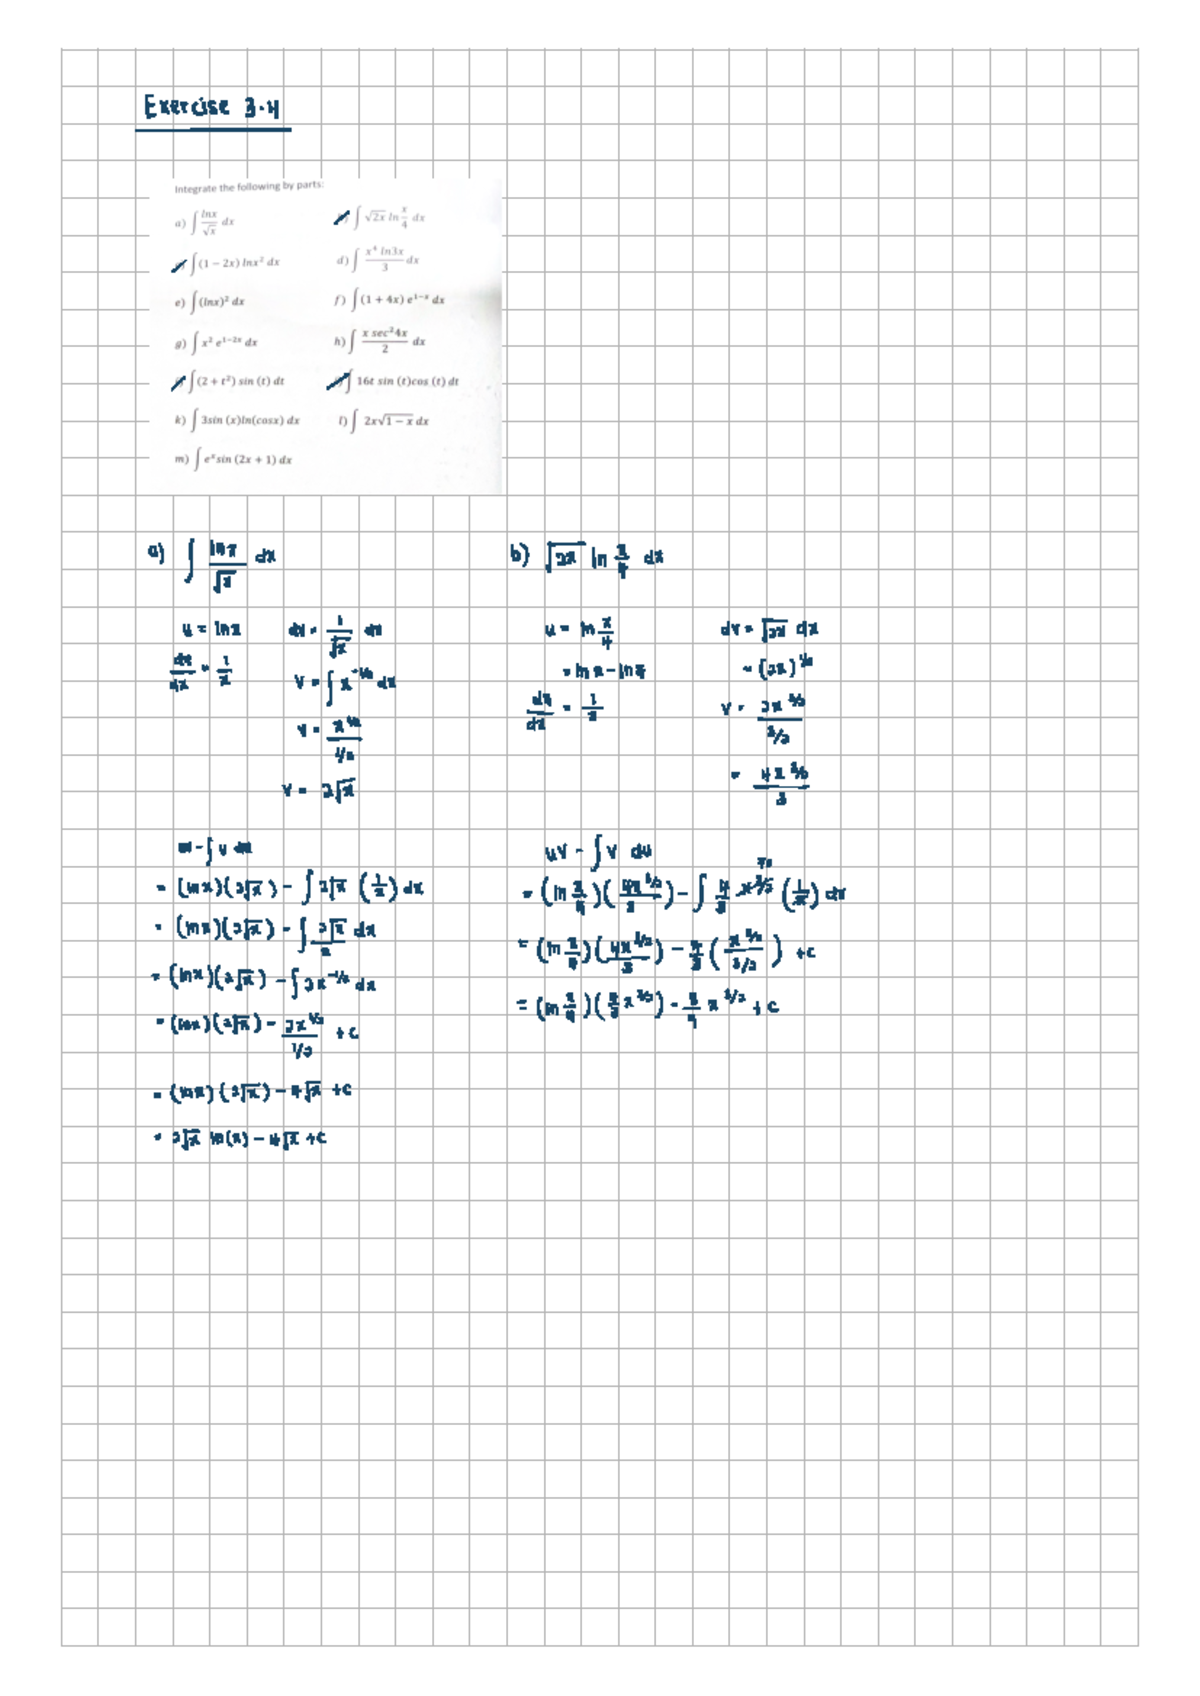 Exercise 3.4
Integrate the following by parts:
a) ∫ lnx/√x dx
∫ √2x ln x/4 dx
∫ (1 − 2x) lnx² dx
d) ∫ x⁴ ln3x/3 dx
e) ∫ (lnx)² dx
f) ∫ (1 + 4x) e¹⁻ˣ dx
g) ∫ x² e¹⁻²ˣ dx
h) ∫ x sec²4x/2 dx
∫ (2 + t²) sin (t) dt
∫ 16t sin (t)cos (t) dt
k) ∫ 3sin (x)ln(cosx) dx
l) ∫ 2x√1 − x dx
m) ∫ eˣsin (2x + 1) dx
a) ∫ lnx/√x dx
u = lnx
dv = 1/√x dx
du/dx = 1/x
v = ∫ x^-1/2 dx
v = x^1/2 / 1/2
v = 2√x
uv - ∫ v du
= (lnx)(2√x) - ∫ 2√x (1/x) dx
= (lnx)(2√x) - ∫ 2√x/x dx
= (lnx)(2√x) - ∫ 2x^-1/2 dx
= (lnx)(2√x) - 2x^1/2 / 1/2 + c
= (lnx)(2√x) - 4√x + c
= 2√x ln(x) - 4√x + c
b) √2x ln x/4 dx
u = ln x/4
= ln x - ln 4
du/dx = 1/x
dv = √2x dx
= (2x)^1/2
v = 2x^3/2 / 3/2
= 4x^3/2 / 3
uv - ∫ v du
= (ln x/4)(4x^3/2 / 3) - ∫ 4/3 x^3/2 (1/x) dx
= (ln x/4)(4x^3/2 / 3) - 4/3 (x^3/2 / 3/2) + c
= (ln x/4)(4/3 x^3/2) - 8/9 x^3/2 + c